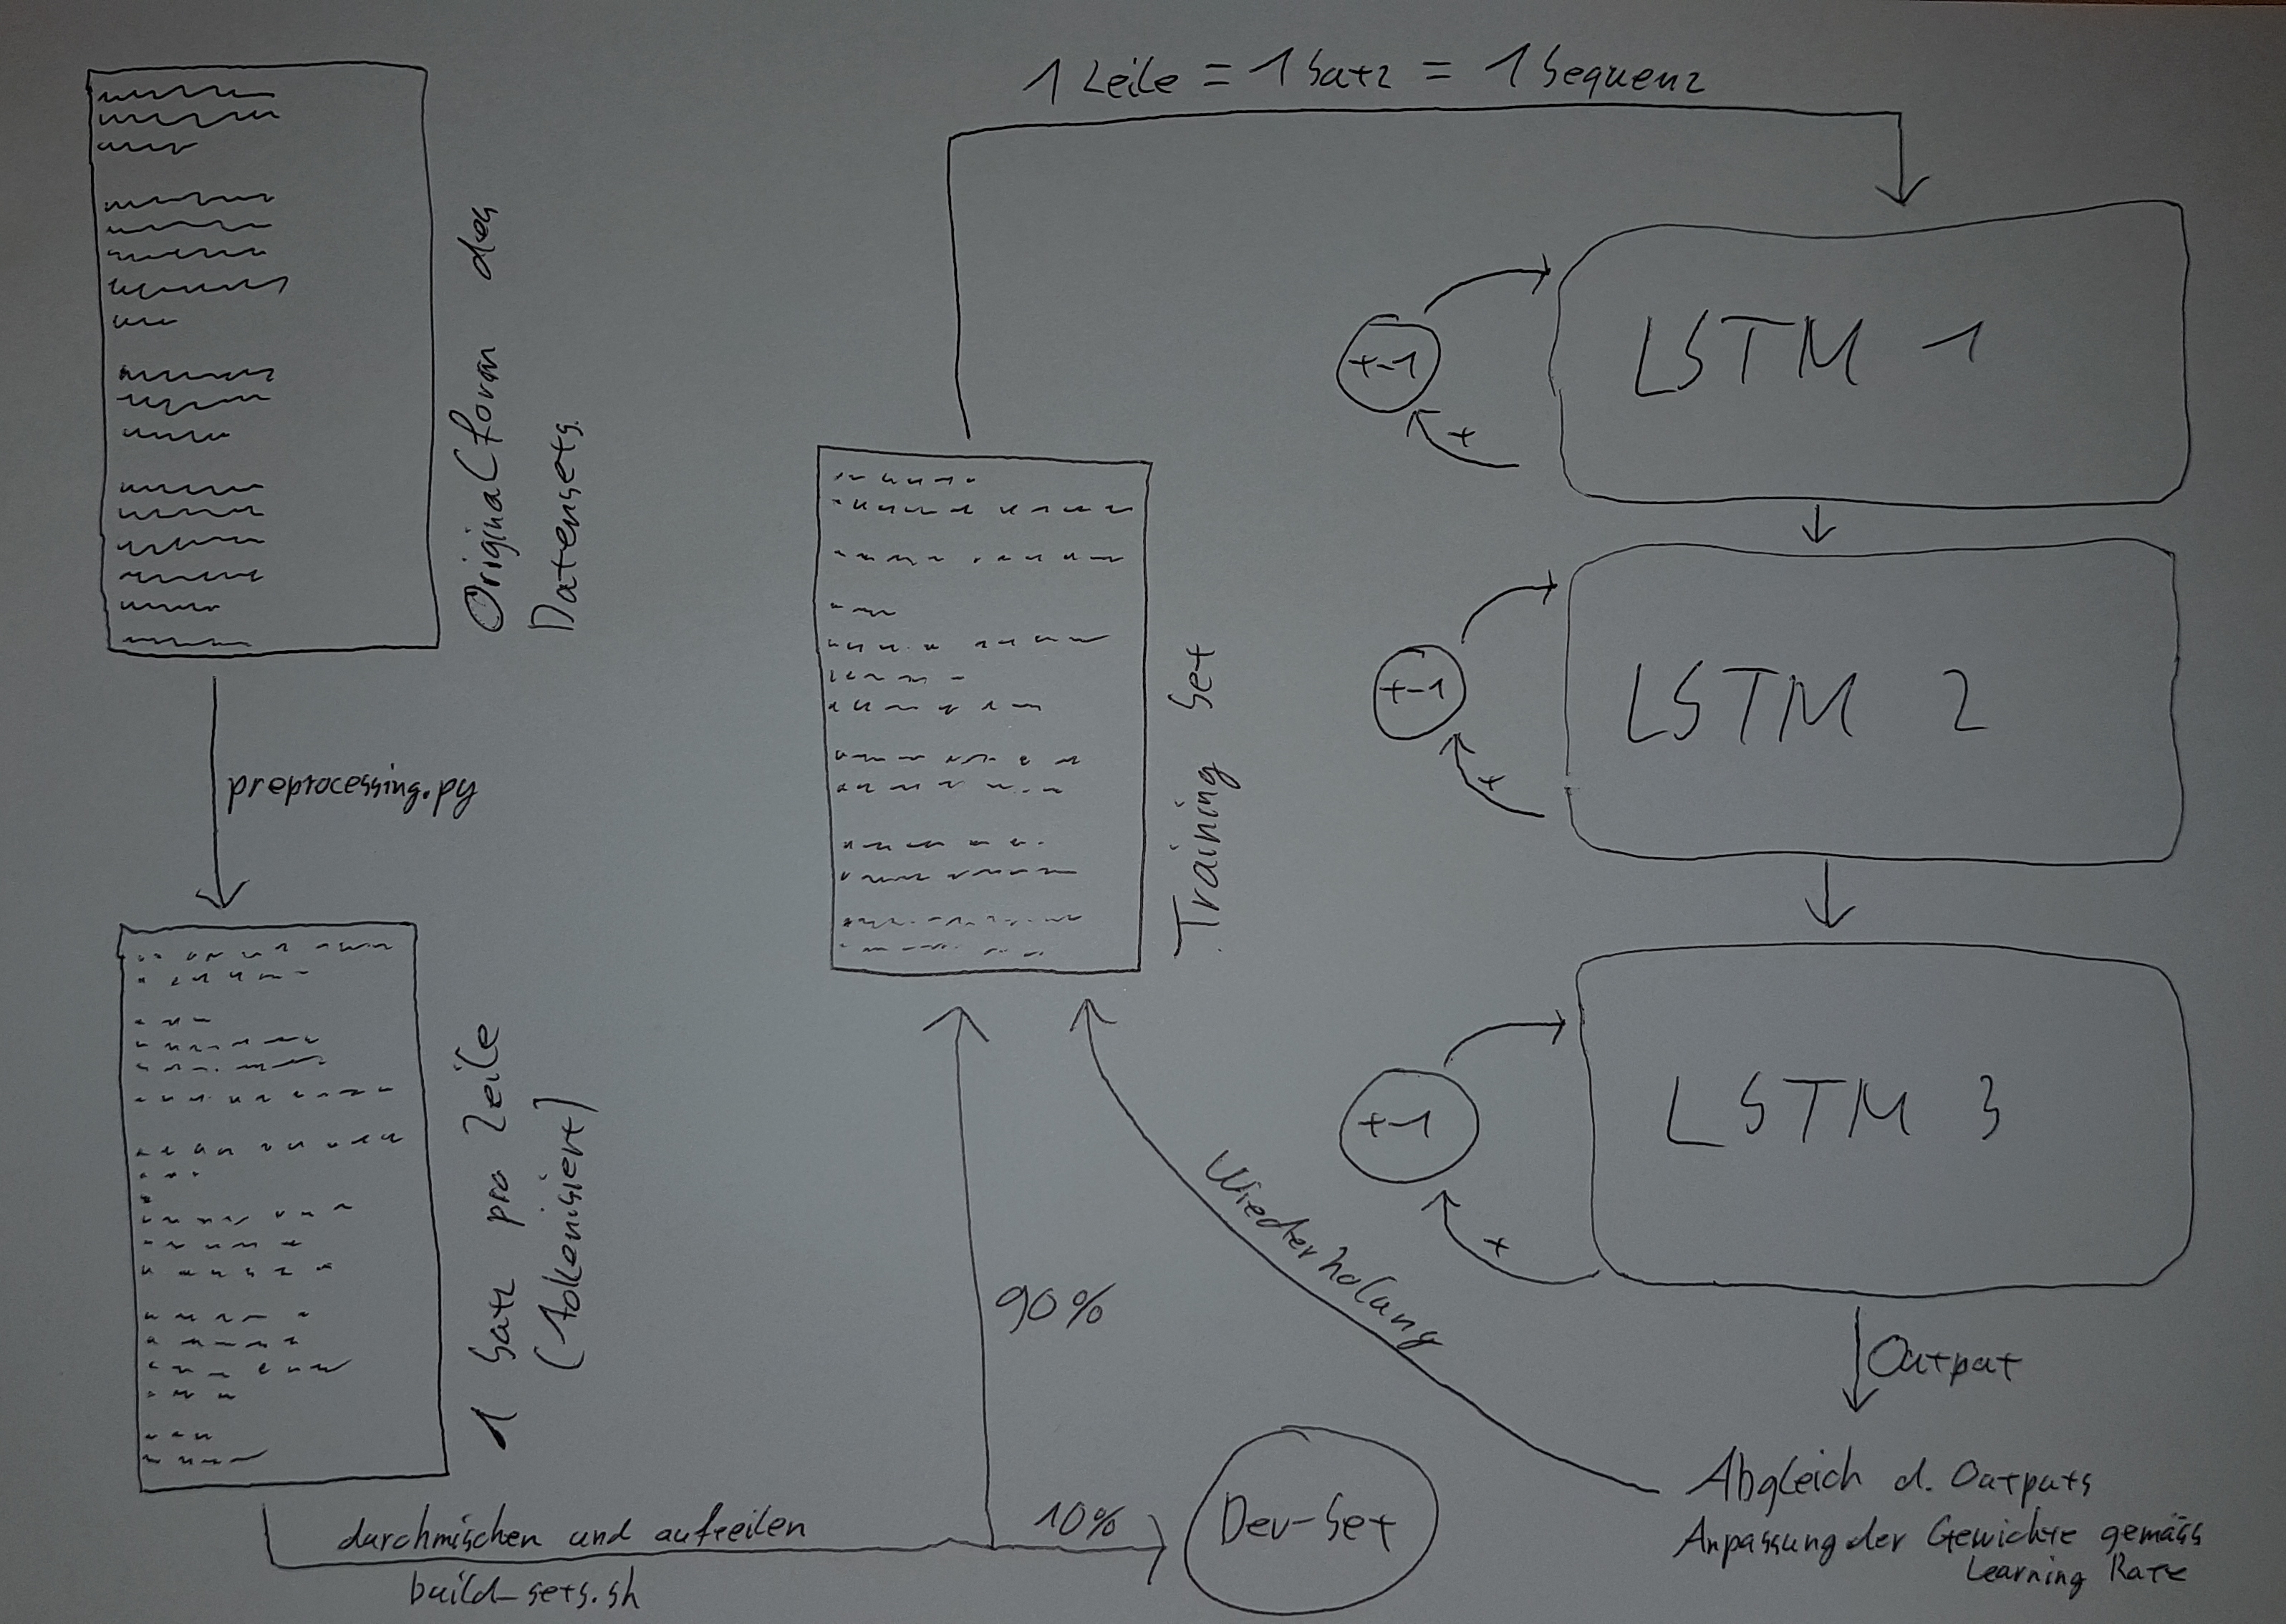 1 Zeile = 1 Satz = 1 Sequenz
Originalform des
Datensets
preprocessing.py
1 Satz pro Zeile
(tokenisiert)
durchmischen und aufteilen
build_sets.sh
90%
10%
Dev-Set
Training Set
+-1
+
LSTM 1
+-1
+
LSTM 2
+-1
+
LSTM 3
Output
Abgleich d. Outputs
Anpassung der Gewichte gemäss
Learning Rate
Wiederholung